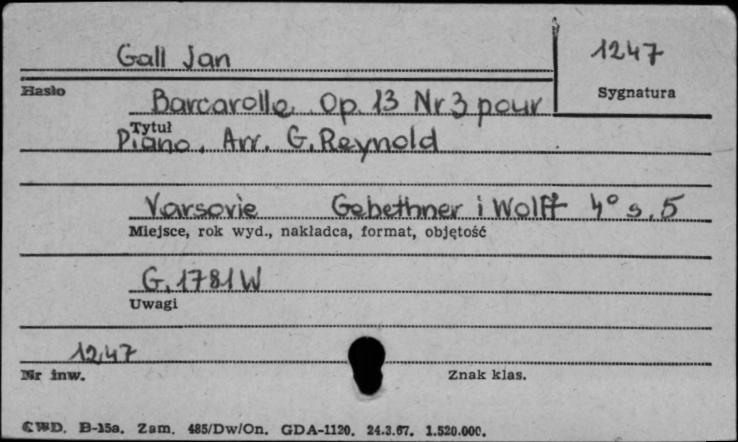 Gall Jan 1247
Hasło Sygnatura
Barcarolle. Op. 13 Nr 3 pour
Tytuł
Piano. Arr. G. Reynold
Varsovie Gebethner i Wolff 4° s. 5
Miejsce, rok wyd., nakładca, format, objętość
G. 1781 W
Uwagi
1247
Nr inw. Znak klas.
CWD. B-15a. Zam. 485/Dw/On. GDA-1120. 24.3.67. 1.520.000.